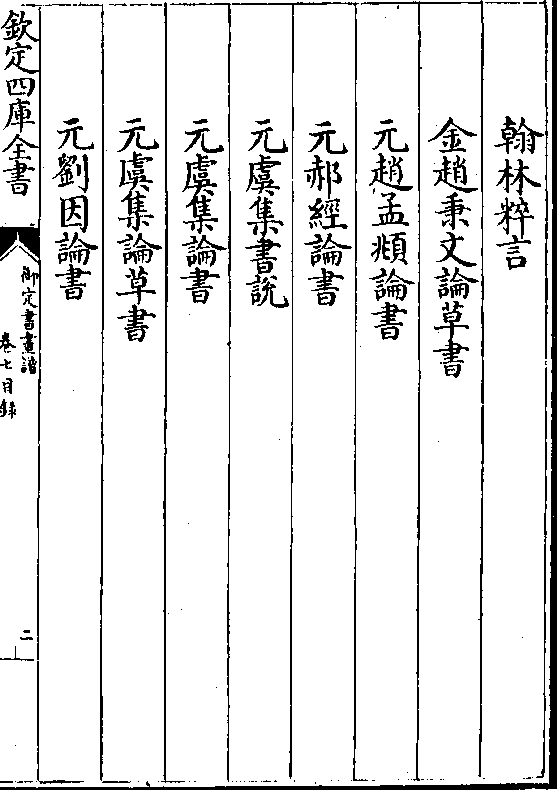 翰林粹言
金趙秉文論草書
元趙孟頫論書
元郝經論書
元虞集書說
元虞集論書
元虞集論草書
元劉因論書
欽定四庫全書
御定書畫譜
卷七目錄
二